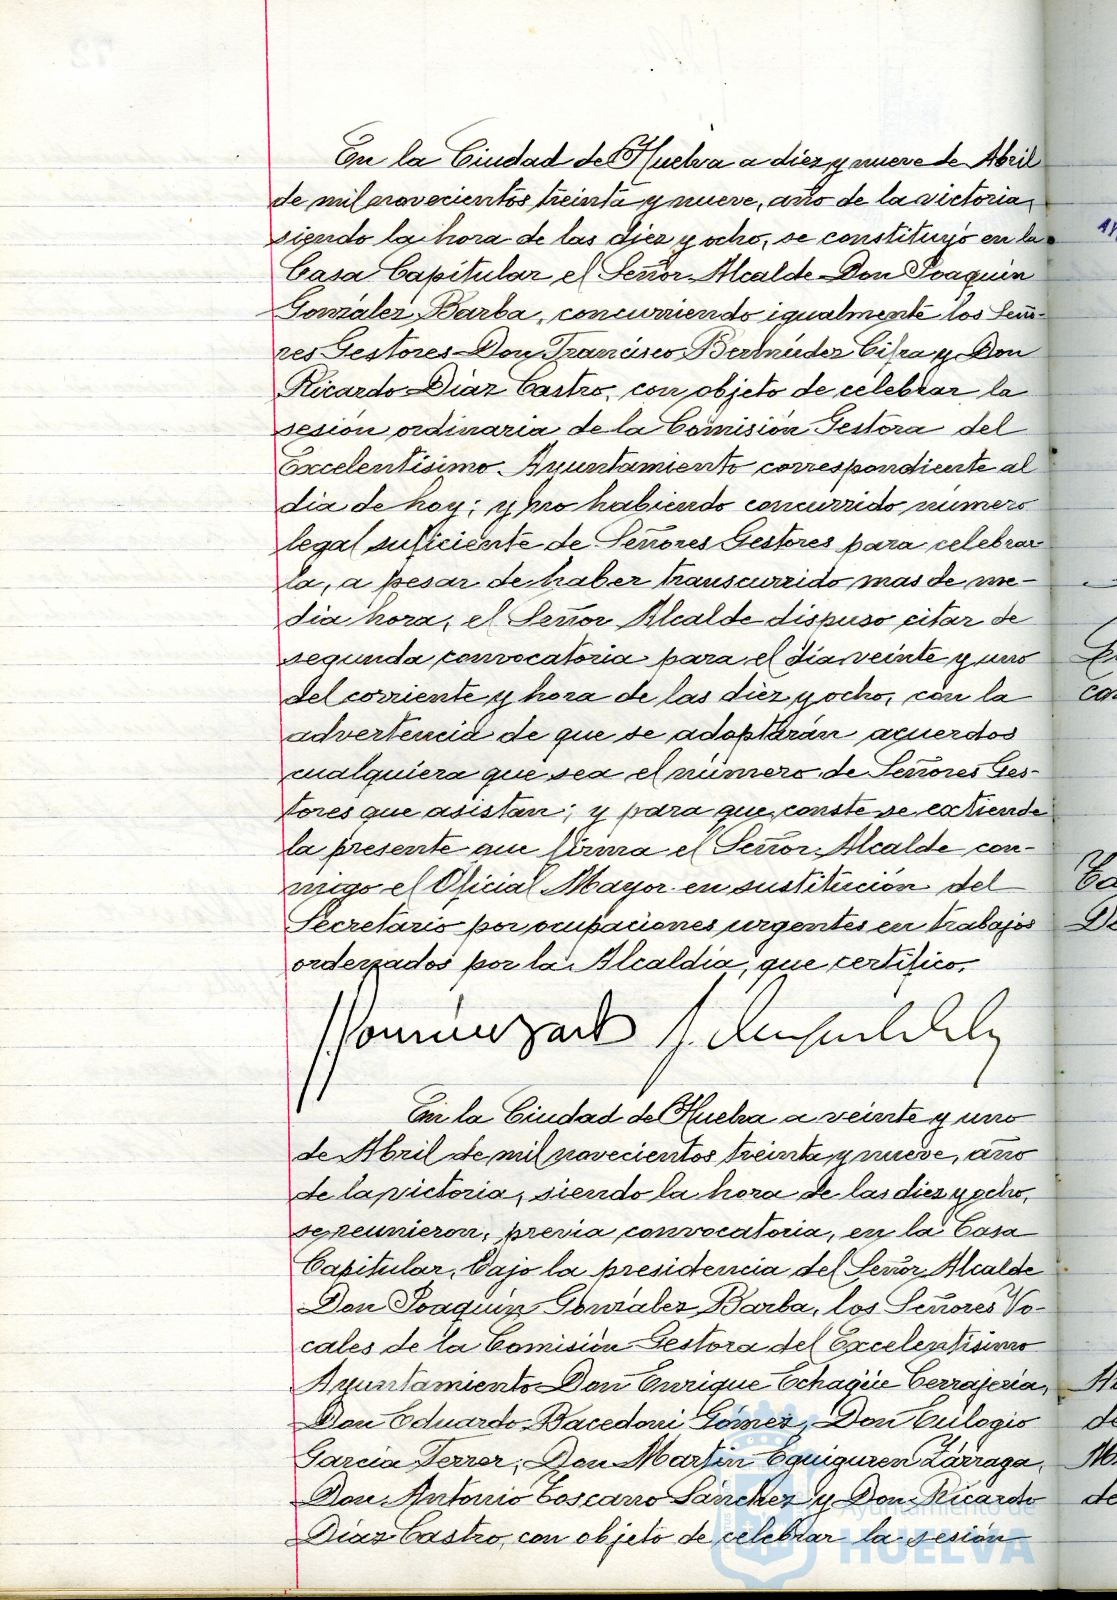 En la Ciudad de Huelva a diez y nueve de Abril
de mil novecientos treinta y nueve, año de la victoria,
siendo la hora de las diez y ocho, se constituyó en la
Casa Capitular el Señor Alcalde Don Joaquin
González Barba, concurriendo igualmente los Seño-
res Gestores Don Francisco Bermúdez Cifra y Don
Ricardo Díaz Castro, con objeto de celebrar la
sesión ordinaria de la Comisión Gestora del
Excelentísimo Ayuntamiento correspondiente al
dia de hoy; y no habiendo concurrido número
legal suficiente de Señores Gestores para celebrar
la, a pesar de haber transcurrido mas de me-
dia hora, el Señor Alcalde dispuso citar de
segunda convocatoria para el dia veinte y uno
del corriente y hora de las diez y ocho, con la
advertencia de que se adoptarán acuerdos
cualquiera que sea el número de Señores Ges-
tores que asistan; y para que conste se extiende
la presente que firma el Señor Alcalde con-
migo el Oficial Mayor en sustitución del
Secretario por ocupaciones urgentes en trabajos
ordenados por la Alcaldía, que certifico.
En la Ciudad de Huelva a veinte y uno
de Abril de mil novecientos treinta y nueve, año
de la victoria, siendo la hora de las diez y ocho,
se reunieron, previa convocatoria, en la Casa
Capitular, bajo la presidencia del Señor Alcalde
Don Joaquín González Barba, los Señores Vo-
cales de la Comisión Gestora del Excelentísimo
Ayuntamiento Don Enrique Echagüe Cerrajería,
Don Eduardo Bacedoni Gómez, Don Eulogio
García Ferrer, Don Martín Eguiguren Zárraga,
Don Antonio Toscano Sánchez y Don Ricardo
Díaz Castro, con objeto de celebrar la sesión
Ayuntamiento de
HUELVA